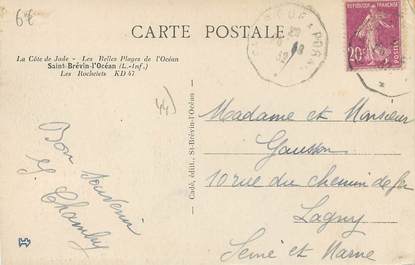 6€
CARTE POSTALE
La Côte de Jade - Les Belles Plages de l'Océan
Saint-Brévin-l'Océan (L.-Inf.)
Les Rochelets KD 47
44)
Bon Souvenir
G. Chambry
Cado, édit., St-Brévin-l'Océan
RÉPUBLIQUE FRANÇAISE
20c
Madame et Monsieur
Gausson
10 rue du Chemin de fer
Lagny
Seine et Marne